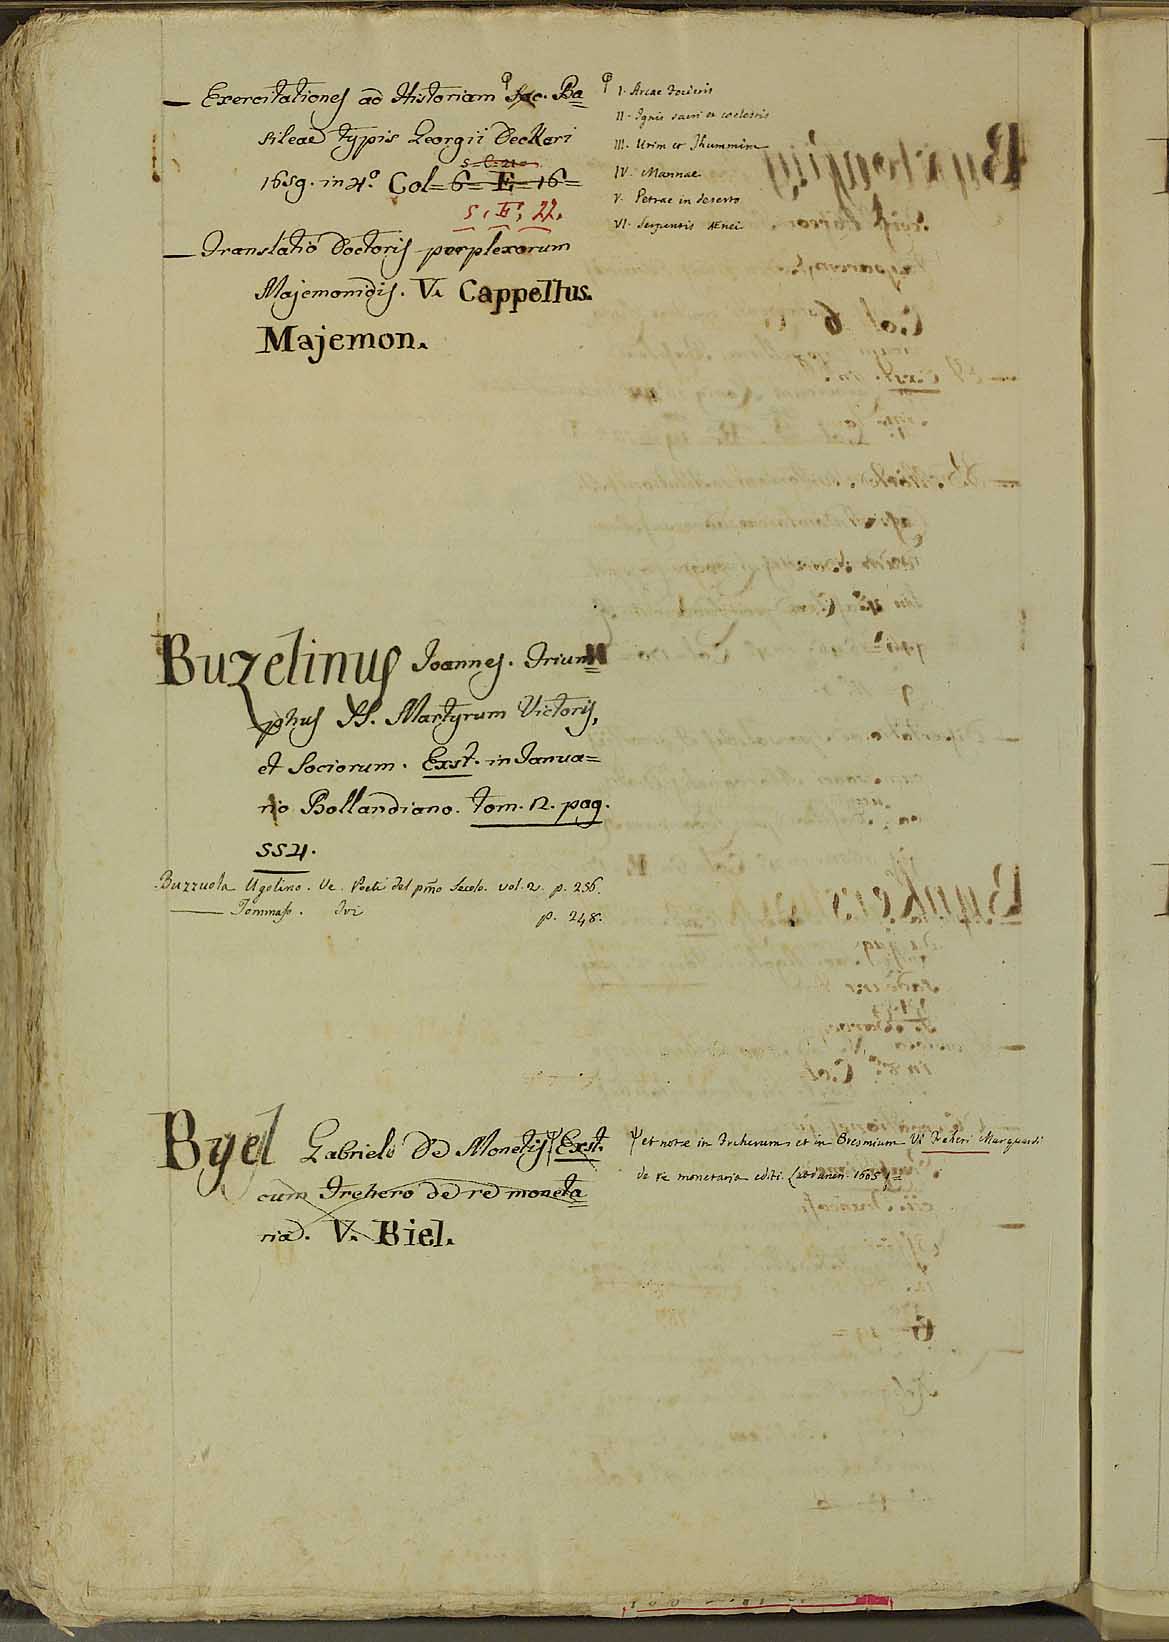 — Exercitationes ad Historiam φ Sac. Ba=
sileae typis Georgii Deckeri
1659. in 4.º Col= 6= E= 16=
5, E, 22.
— Translatio Doctoris perplexorum
Majemonidis. V. Cappellus.
Majemon.
φ I. Arcae foederis
II. Ignis sacri et coelestis
III. Urim et Thummim
IV. Mannae
V. Petrae in deserto
VI. Serpentis AEnei
Buzelinus Joannes. Trium=
phus SS. Martyrum Victoris,
et Sociorum. Exst. in Janua=
rio Bollandiano. tom. 2. pag.
554.
Buzzuola Ugolino. Ve. Poeti del pmo Secolo. vol. 2. p. 256.
— Tommaso. Ivi p. 248.
Byel Gabriel De Monetis ψ Exst.
cum Trehero de re moneta=
ria. V. Biel.
ψ et notae in Treherum et in Oresmium V. Treheri Marquardi
de re monetaria editi 1605